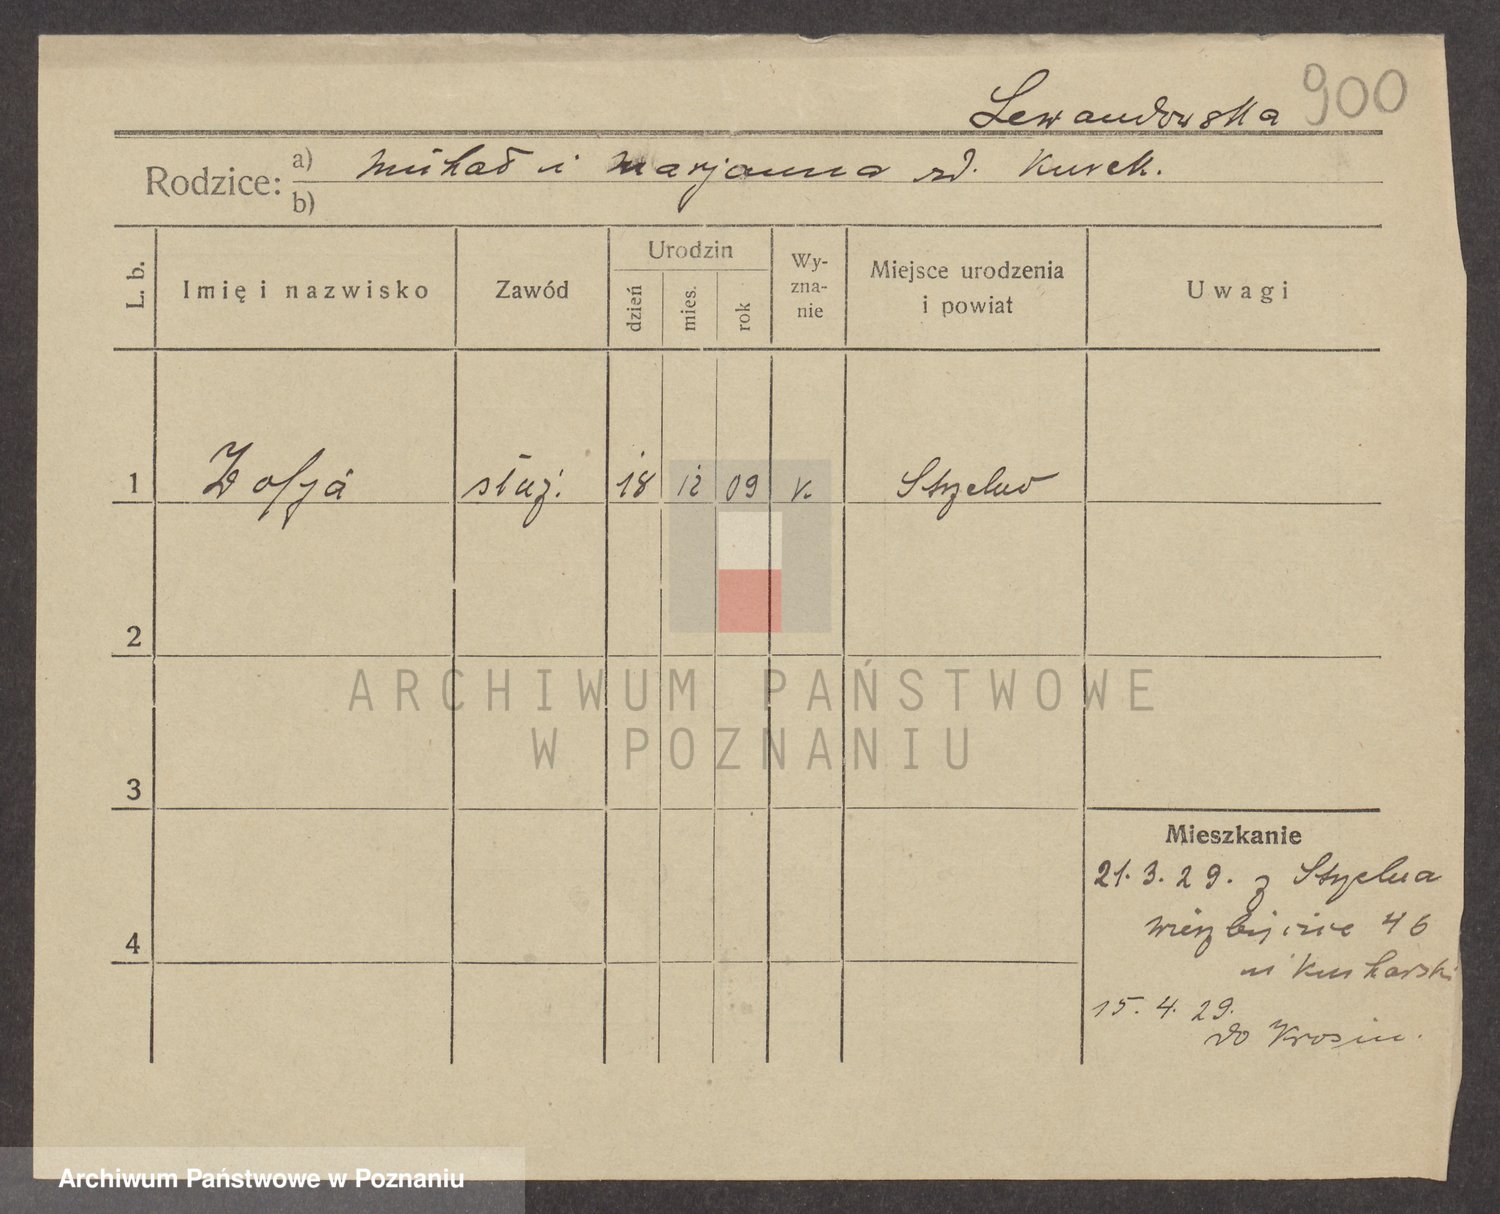 Lewandowska 900
Rodzice: a) Michał i Marjanna rd. Kurek.
b)
L. b.
Imię i nazwisko
Zawód
Urodzin
dzień
mies.
rok
Wy-
zna-
nie
Miejsce urodzenia
i powiat
Uwagi
1 Zofja służ. 18 12 09 k. Strzelno
2
3
4
Mieszkanie
21. 3. 29. z Strzelna
46
u Kucharski
15. 4. 29.
do Krosin.
ARCHIWUM PAŃSTWOWE
W POZNANIU
Archiwum Państwowe w Poznaniu